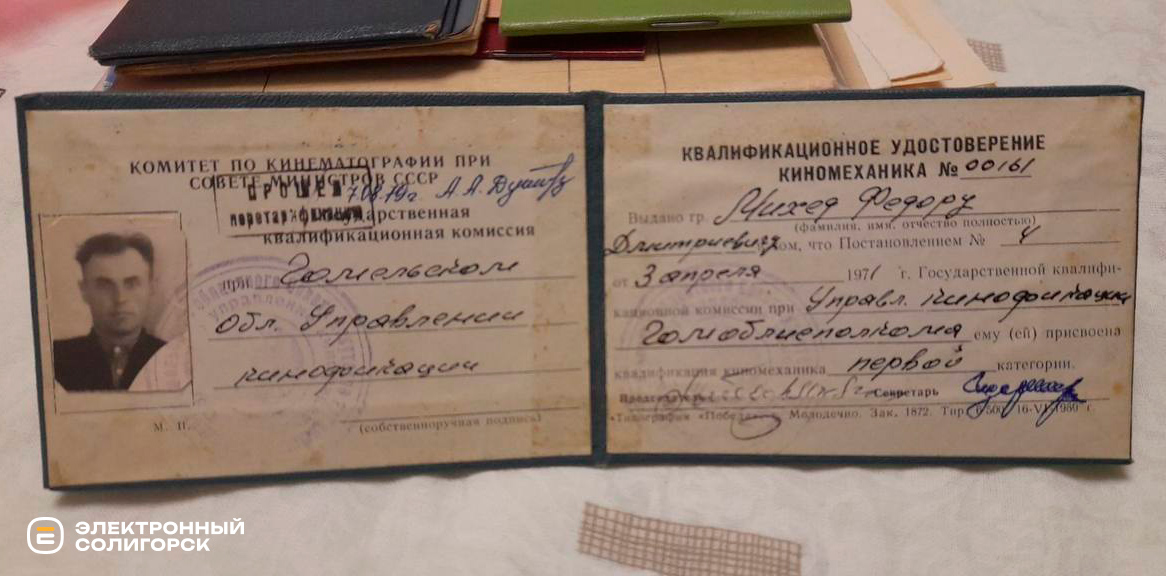 КОМИТЕТ ПО КИНЕМАТОГРАФИИ ПРИ
СОВЕТЕ МИНИСТРОВ СССР
ПРОШЕЛ
А.А.
Государственная
квалификационная комиссия
при Гомельском
обл. Управлении
кинофикации
М. П.
(собственноручная подпись)
КВАЛИФИКАЦИОННОЕ УДОСТОВЕРЕНИЕ
КИНОМЕХАНИКА № 00161
Выдано гр. Михед Федору
(фамилия, имя, отчество полностью)
Дмитриевичу в том, что Постановлением № 4
от 3 апреля 1971 г. Государственной квалифи-
кационной комиссии при Управл. кинофикации
Гомоблисполкома ему (ей) присвоена
квалификация киномеханика первой категории.
Председатель Секретарь
Типография «Победа», г. Молодечно. Зак. 1872. Тир. 16-VI-1969 г.
ЭЛЕКТРОННЫЙ
СОЛИГОРСК